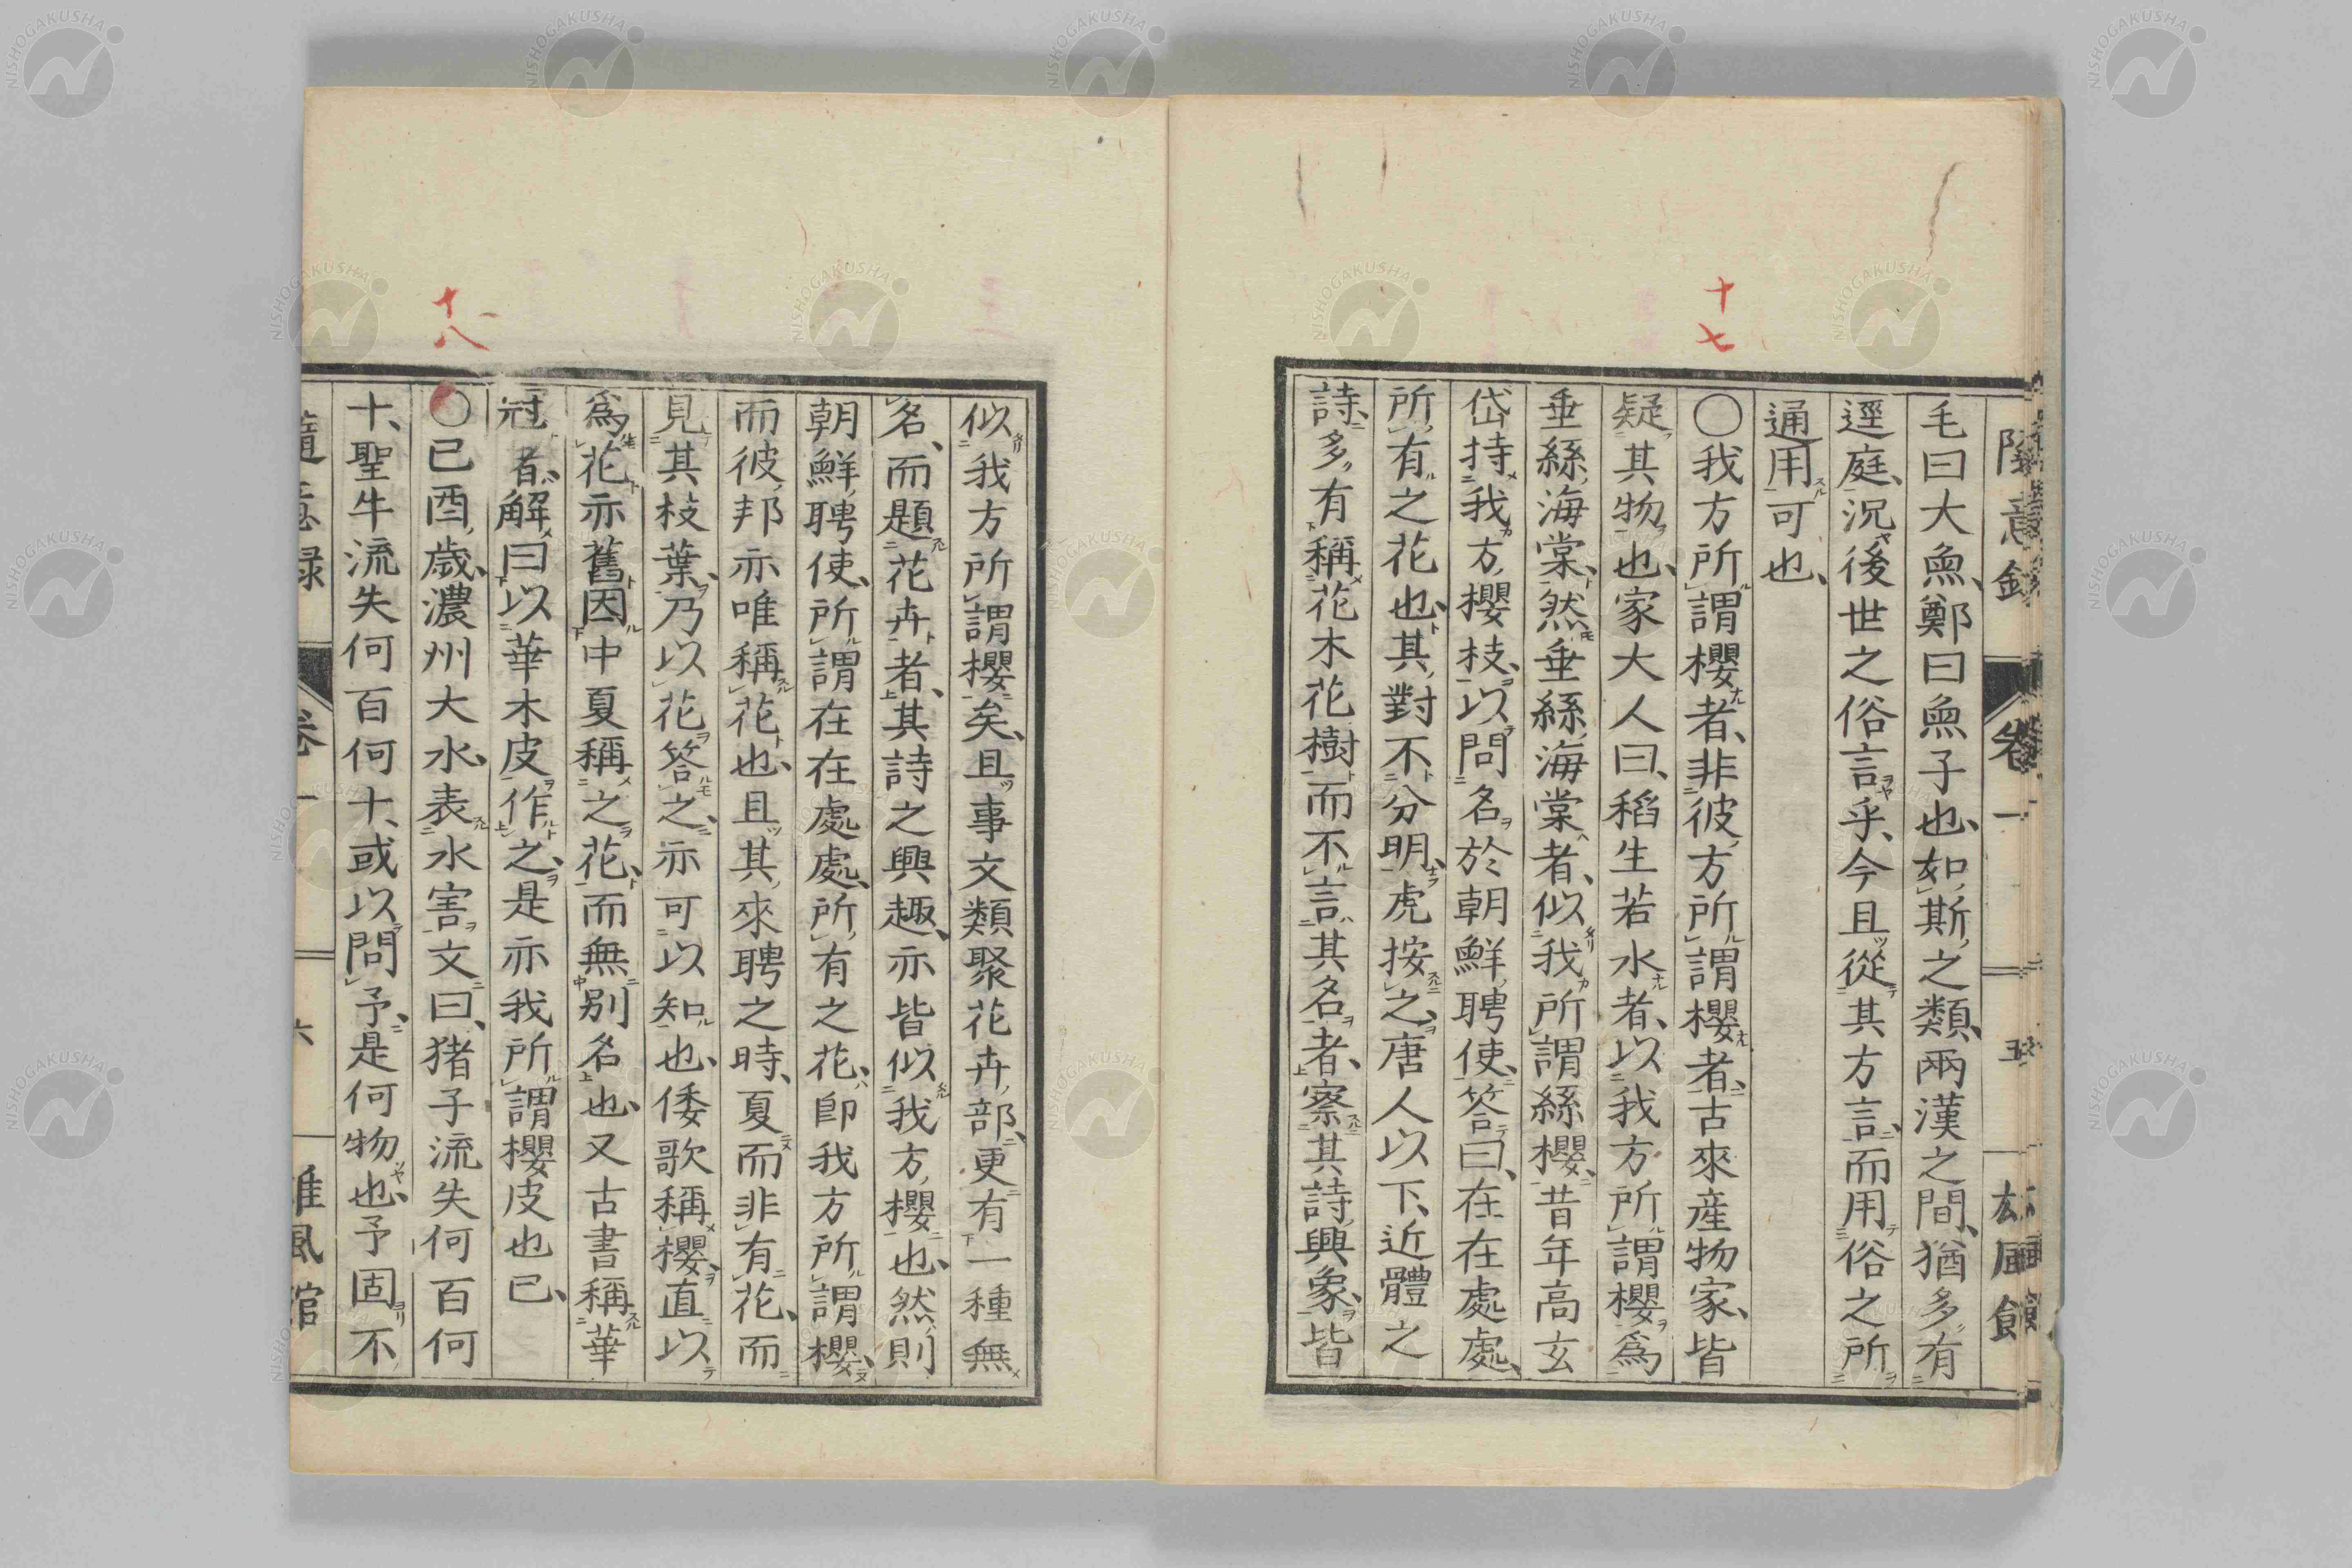 隨意錄 卷一 五
毛曰大魚、鄭曰魚子也、如斯之類、兩漢之間、猶多有
逕庭、況後世之俗言乎、今且從其方言、而用俗之所
通用可也、
十七
○我方所謂櫻者、非彼方所謂櫻者、古來産物家、皆
疑其物也、家大人曰、稻生若水者、以我方所謂櫻爲
垂絲海棠、然垂絲海棠者、似我所謂絲櫻、昔年高玄
岱持我方櫻枝、以問名於朝鮮聘使、答曰、在在處處、
所有之花也、其對不分明、虎按之、唐人以下、近體之
詩、多有稱花木花樹、而不言其名者、察其詩興象、皆
似我方所謂櫻矣、且事文類聚花卉部、更有一種無
名、而題花卉者、其詩之興趣、亦皆似我方櫻也、然則
朝鮮聘使、所謂在在處處、所有之花、卽我方所謂櫻、
而彼邦亦唯稱花也、且其來聘之時、夏而非有花、而
見其枝葉、乃以花答之、亦可以知也、倭歌稱櫻、直以
爲花、亦舊因中夏稱之花、而無別名也、又古書稱華
冠者、解曰、以華木皮作之、是亦我所謂櫻皮也已、
十八
○已酉歲、濃州大水、表水害文曰、猪子流失何百何
十、聖牛流失何百何十、或以問予、是何物也、予固不
隨意錄 卷一 六 雄風館
NISHOGAKUSHA